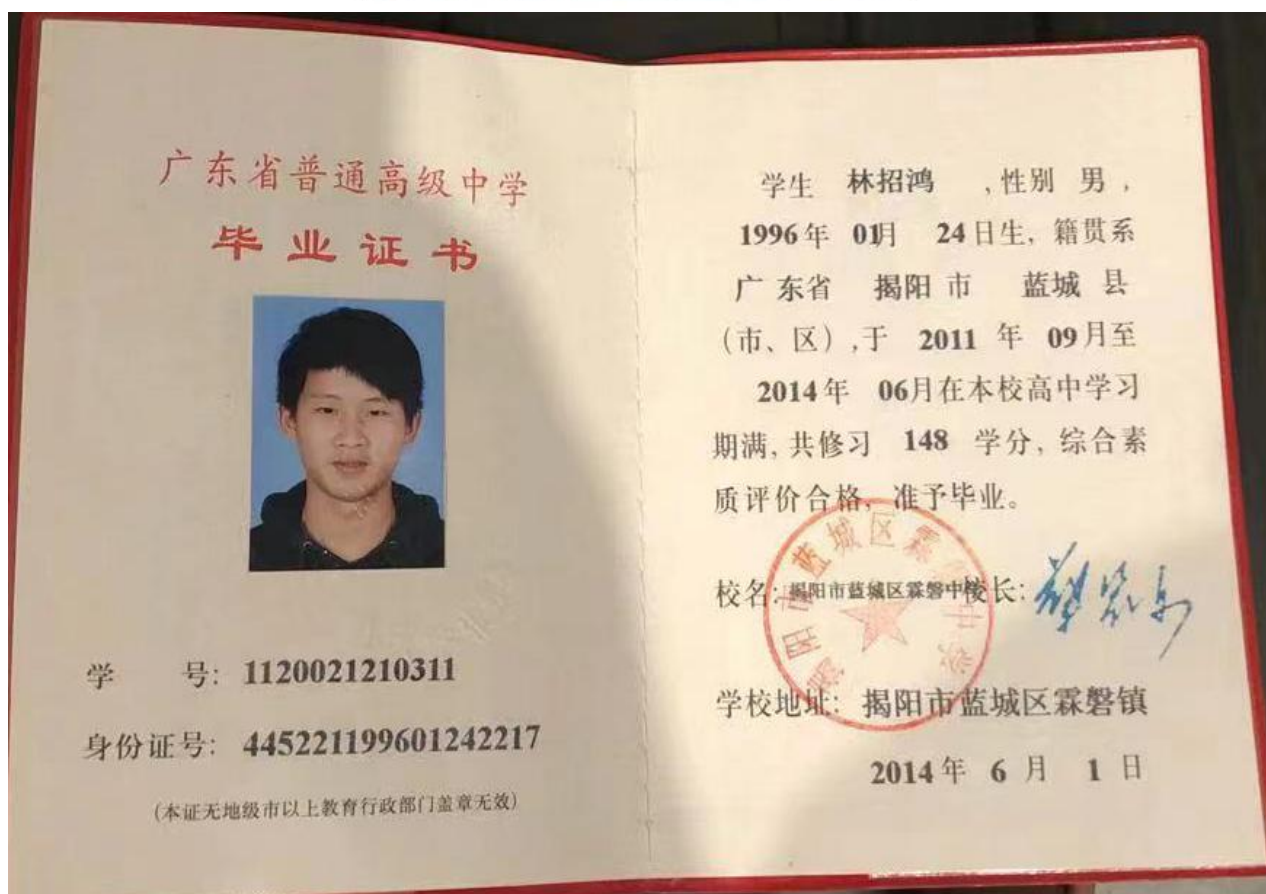 广东省普通高级中学
毕业证书
学 号: 1120021210311
身份证号: 445221199601242217
(本证无地级市以上教育行政部门盖章无效)
学生 林招鸿 ,性别 男,
1996年 01月 24日生, 籍贯系
广东省 揭阳市 蓝城县
(市、区),于 2011 年 09月至
2014年 06月在本校高中学习
期满, 共修习 148 学分, 综合素
质评价合格, 准予毕业。
校名: 揭阳市蓝城区霖磐中学 校长:
揭阳市蓝城区霖磐中学
学校地址: 揭阳市蓝城区霖磐镇
2014年 6月 1日